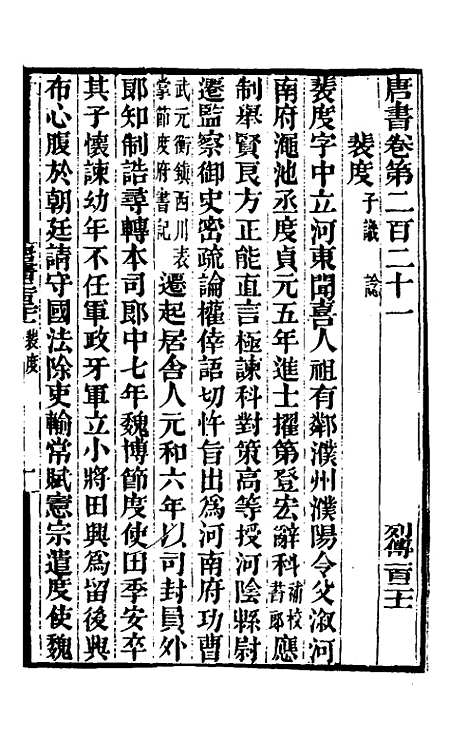 唐書卷第二百二十一
列傳一百二十一
裴度 子譔 諗
裴度字中立河東聞喜人祖有鄰濮州濮陽令父漵河
南府澠池丞度貞元五年進士擢第登宏辭科補校書郎應
制舉賢良方正能直言極諫科對策高等授河陰縣尉
遷監察御史密疏論權倖語切忤旨出爲河南府功曹
武元衡鎮西川表掌節度府書記遷起居舍人元和六年以司封員外
郎知制誥尋轉本司郎中七年魏博節度使田季安卒
其子懷諫幼年不任軍政牙軍立小將田興爲留後興
布心腹於朝廷請守國法除吏輸常賦憲宗遣度使魏
裴度